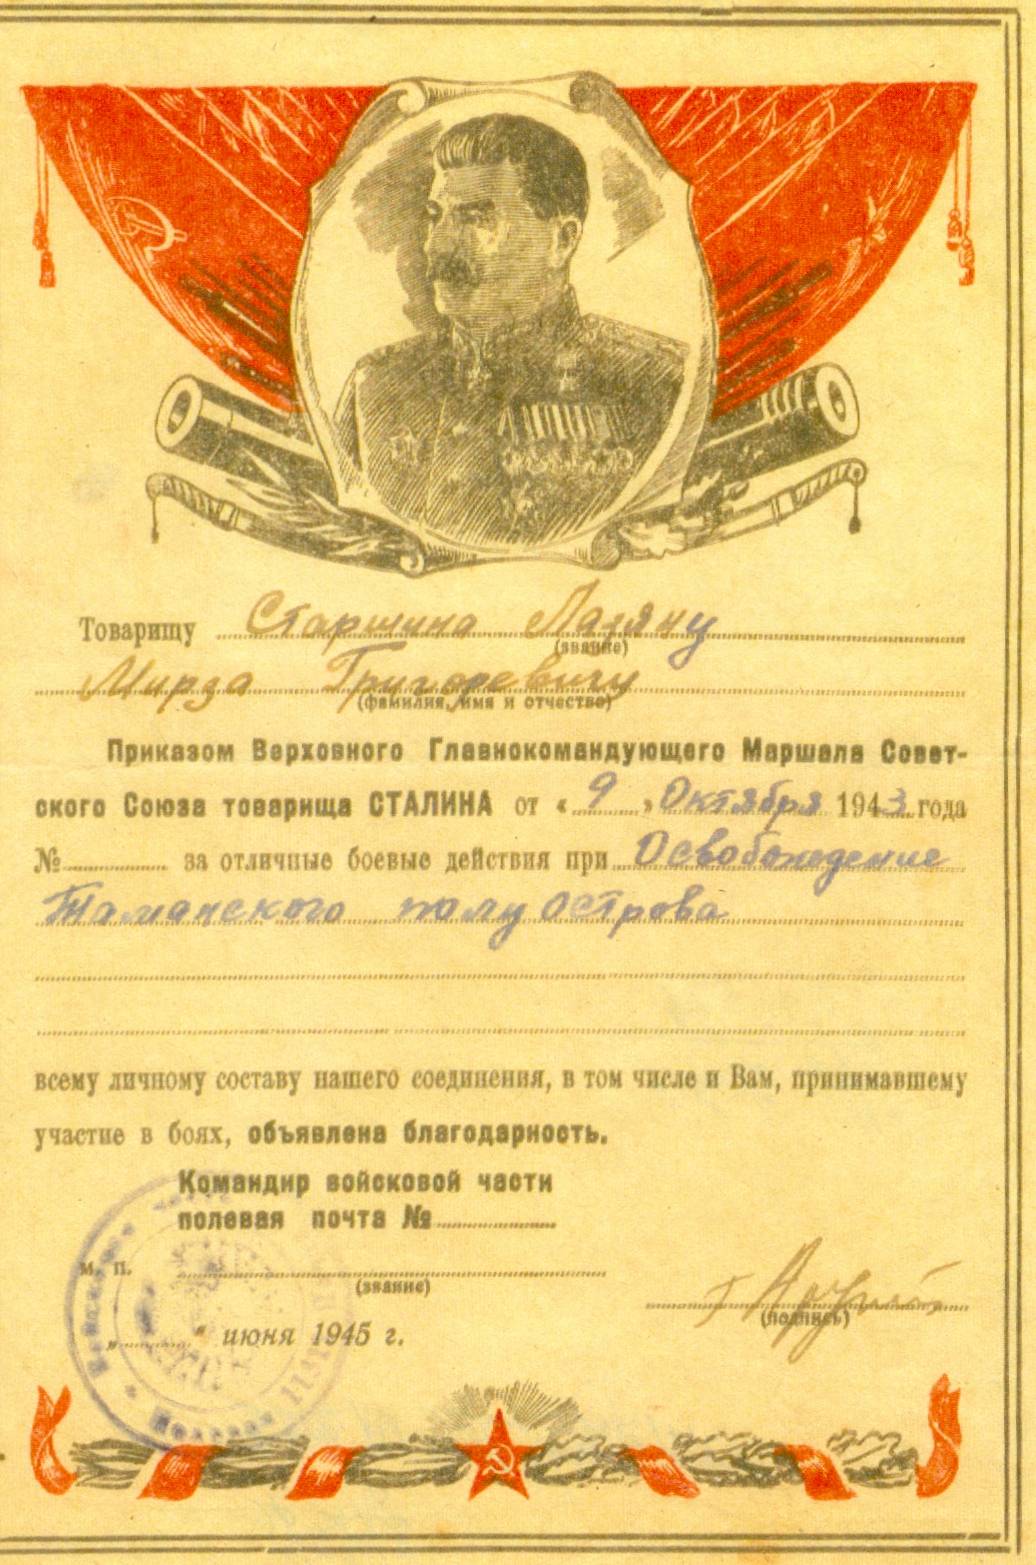 Товарищу Старшина Лазяну
(звание)
Мирза Григоревичу
(фамилия, имя и отчество)
Приказом Верховного Главнокомандующего Маршала Совет-
ского Союза товарища СТАЛИНА от « 9 » Октября 1943 года
№ за отличные боевые действия при Освобождение
Таманского полуострова
всему личному составу нашего соединения, в том числе и Вам, принимавшему
участие в боях, объявлена благодарность.
Командир войсковой части
полевая почта №
м. п.
(звание)
(подпись)
„ “ июня 1945 г.